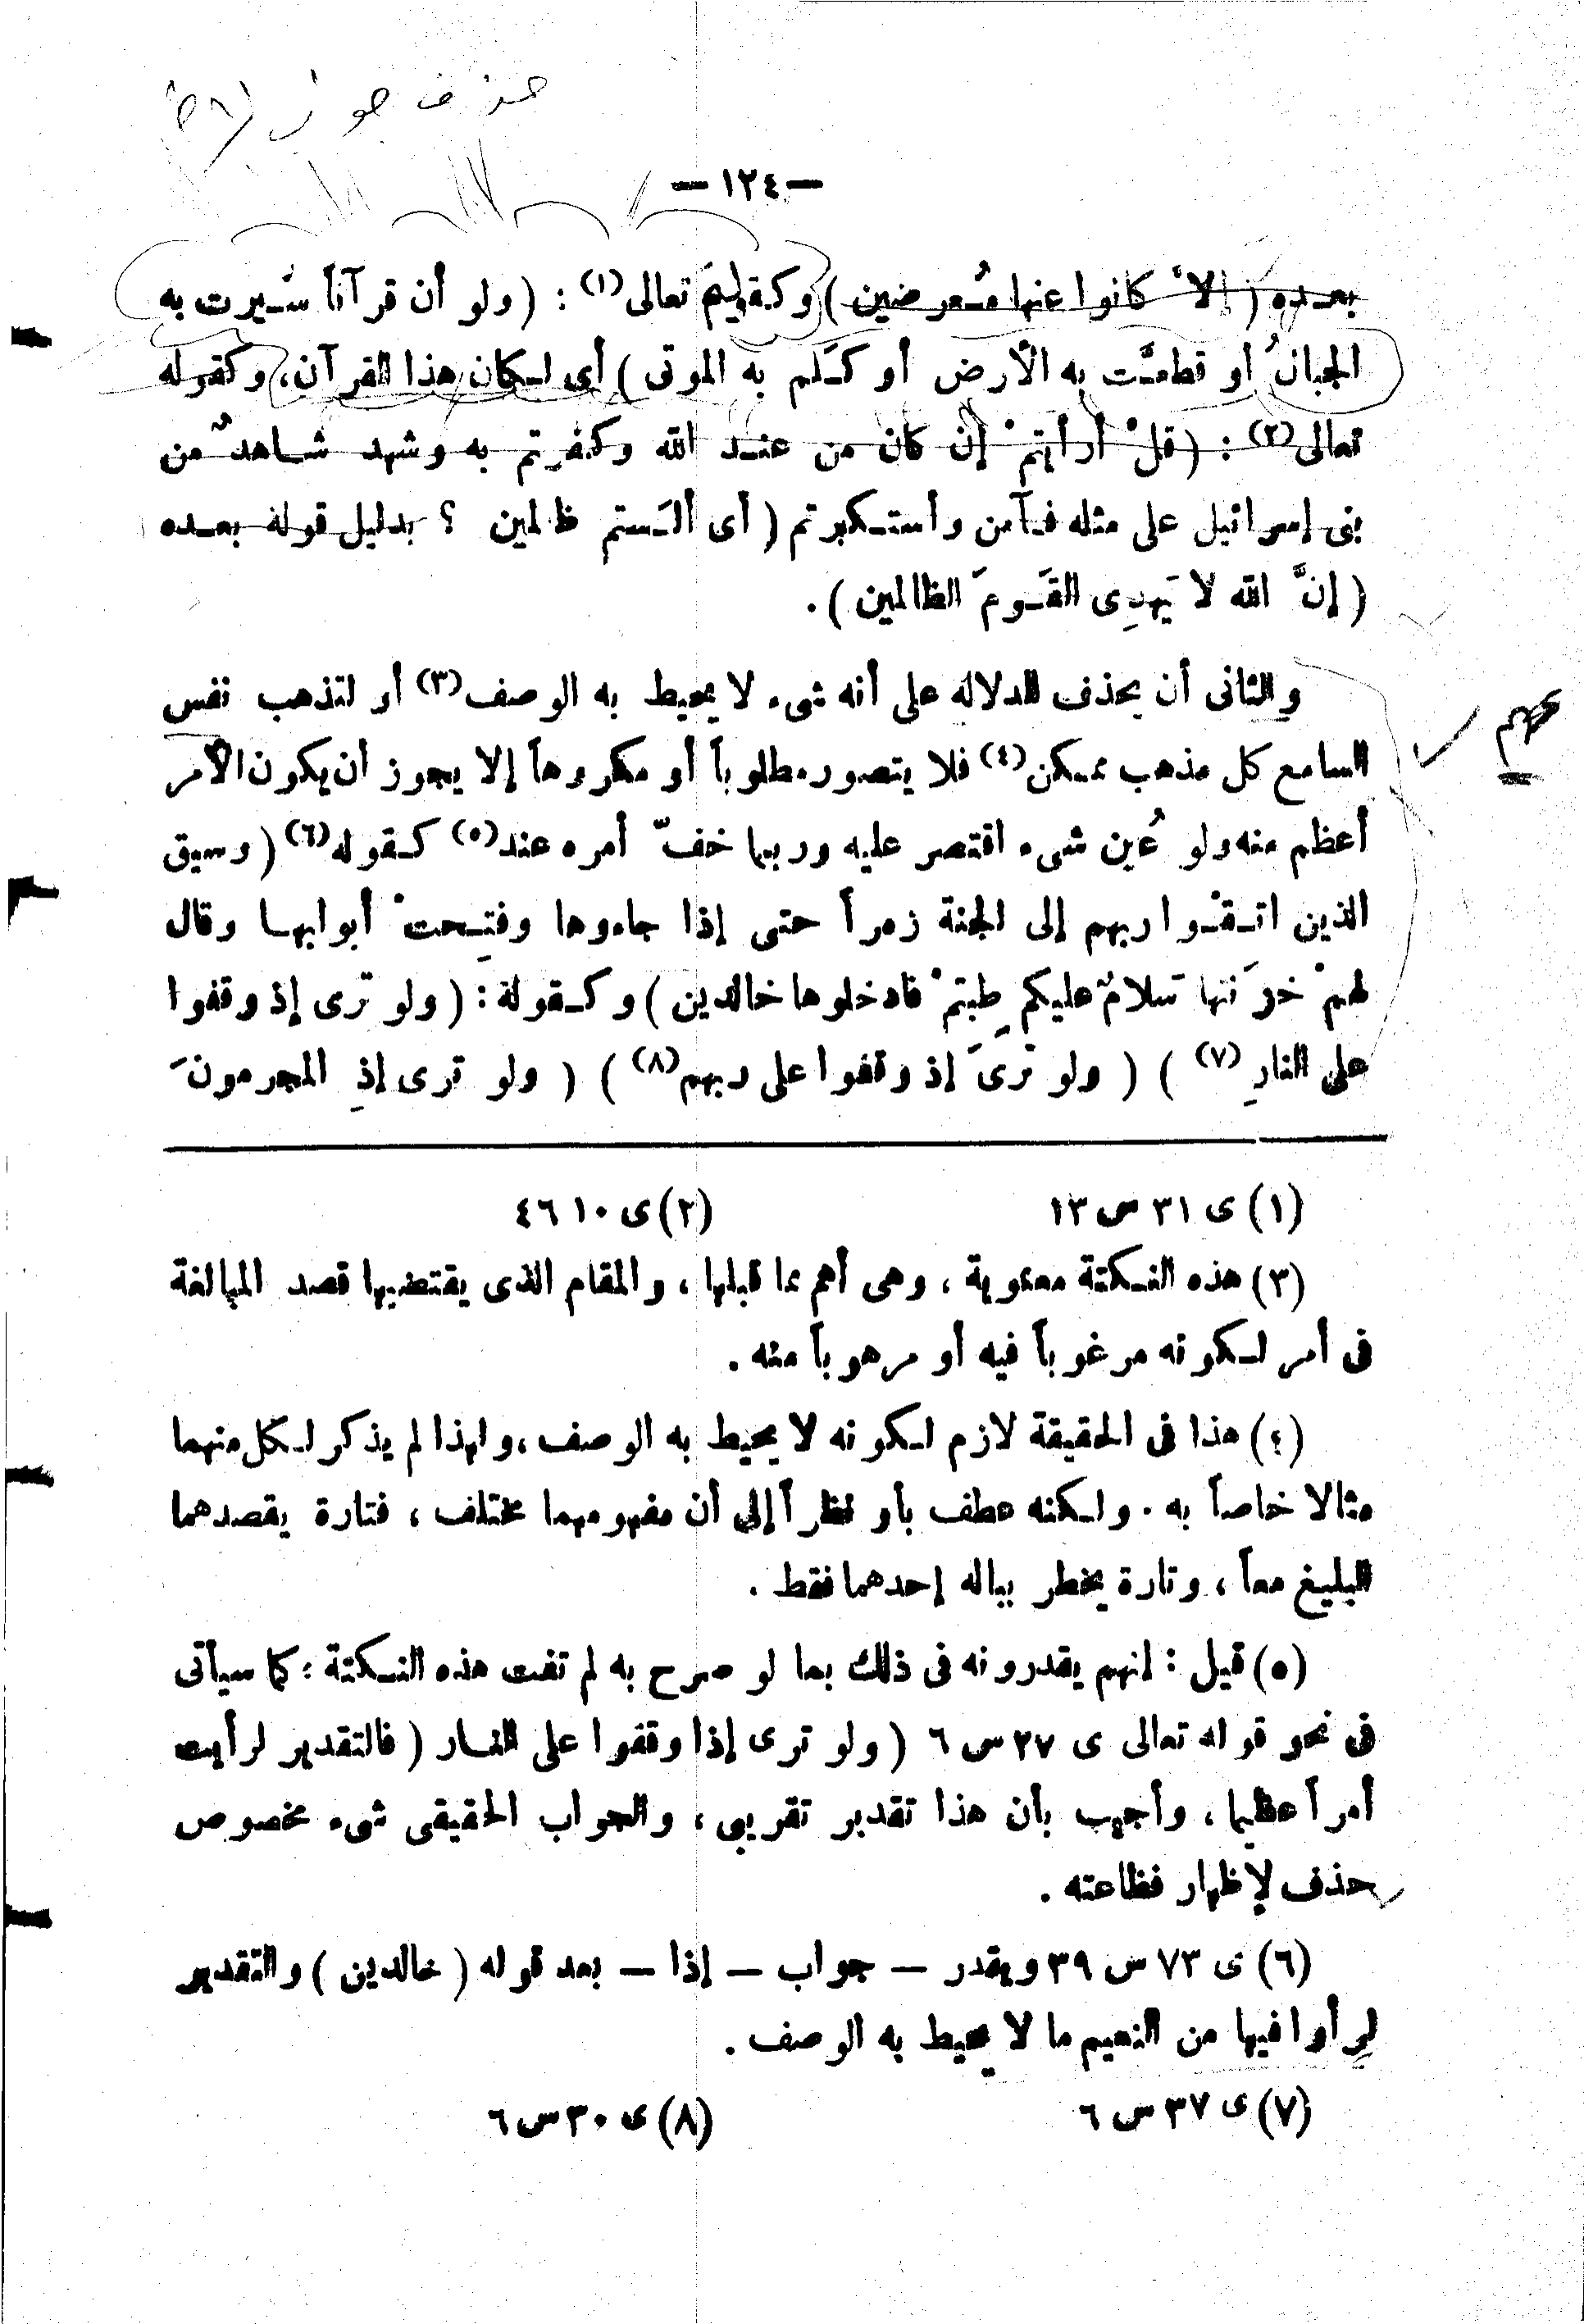 حذف جواب
— ١٢٤ —
بعـده ( إلاّ كانوا عنها مُـعرضين ) وكقوله تعالى(١) : ( ولو أن قرآناً سُـيرت به
الجبالُ أو قطعـَّت به الأرض أو كـَـلم به الموتى ) أى لـكان هذا القرآن، وكقوله
تعالى(٢) : ( قلْ أرأيتمْ إنْ كان من عنـد الله وكفرتم به وشهد شـاهدٌ من
بنى إسرائيل على مثله فـآمن وأستـكبرتم ( أى ألـَستم ظالمين ؟ بدليل قولة بعـده
( إنَّ الله لا يَهدِى القـَـومَ الظالمين ) .
والثانى أن يحذف للدلاله على أنه شىء لا يحيط به الوصف(٣) أو لتذهب نفس
السامع كل مذهب ممـكن(٤) فلا يتصور مطلوباً أو مكروهاً إلا يجوز أن يكون الأمر
أعظم منه ولو عُين شىء اقتصر عليه وربما خفّ أمره عند(٥) كـقوله(٦) ( وسيق
الذين اتـقـْـوا ربهم إلى الجنة زمراً حتى إذا جاءوها وفتِـحتْ أبوابهـا وقال
لهمْ خزَنتها سَلامٌ عليكم طِبتمْ فادخلوها خالدين ) وكـقولة : ( ولو تَرى إذ وقفوا
على النارِ (٧) ) ( ولو تَرىَ إذ وقفوا على ربهم(٨) ) ( ولو ترى إذِ المجرمونَ
مهم
(١) ى ٣١ س ١٣ (٢) ى ١٠ ٤٦
(٣) هذه النـكتة معنوية ، وهى أهم مما قبلها ، والمقام الذى يقتضيها قصد المبالغة
فى أمر لـكونه مرغوباً فيه أو مرهوباً منه .
(٤) هذا فى الحقيقة لازم لـكونه لا يحيط به الوصف ، ولهذا لم يذكر لـكل منهما
مثالا خاصاً به . ولـكنه عطف بأو نظراً إلى أن مفهومهما مختلف ، فتارة يقصدهما
البليغ معاً ، وتارة يخطر بباله إحدهما فقط .
(٥) قيل : إنهم يقدرونه فى ذلك بما لو صرح به لم تفت هذه النـكتة ؛ كما سيأتى
فى نحو قوله تعالى ى ٢٧ س ٦ ( ولو ترى إذا وقفوا على النـار ( فالتقدير لرأيت
أمراً عظيما ، وأجيب بأن هذا تقدير تقريبى ، والجواب الحقيقى شىء مخصوص
حذف لإظهار فظاعته .
(٦) ى ٧٣ س ٣٩ ويقدر — جواب — إذا — بعد قوله ( خالدين ) والتقدير
لرأوا فيها من النعيم ما لا يحيط به الوصف .
(٧) ى ٣٧ س ٦ (٨) ى ٣٠ س ٦